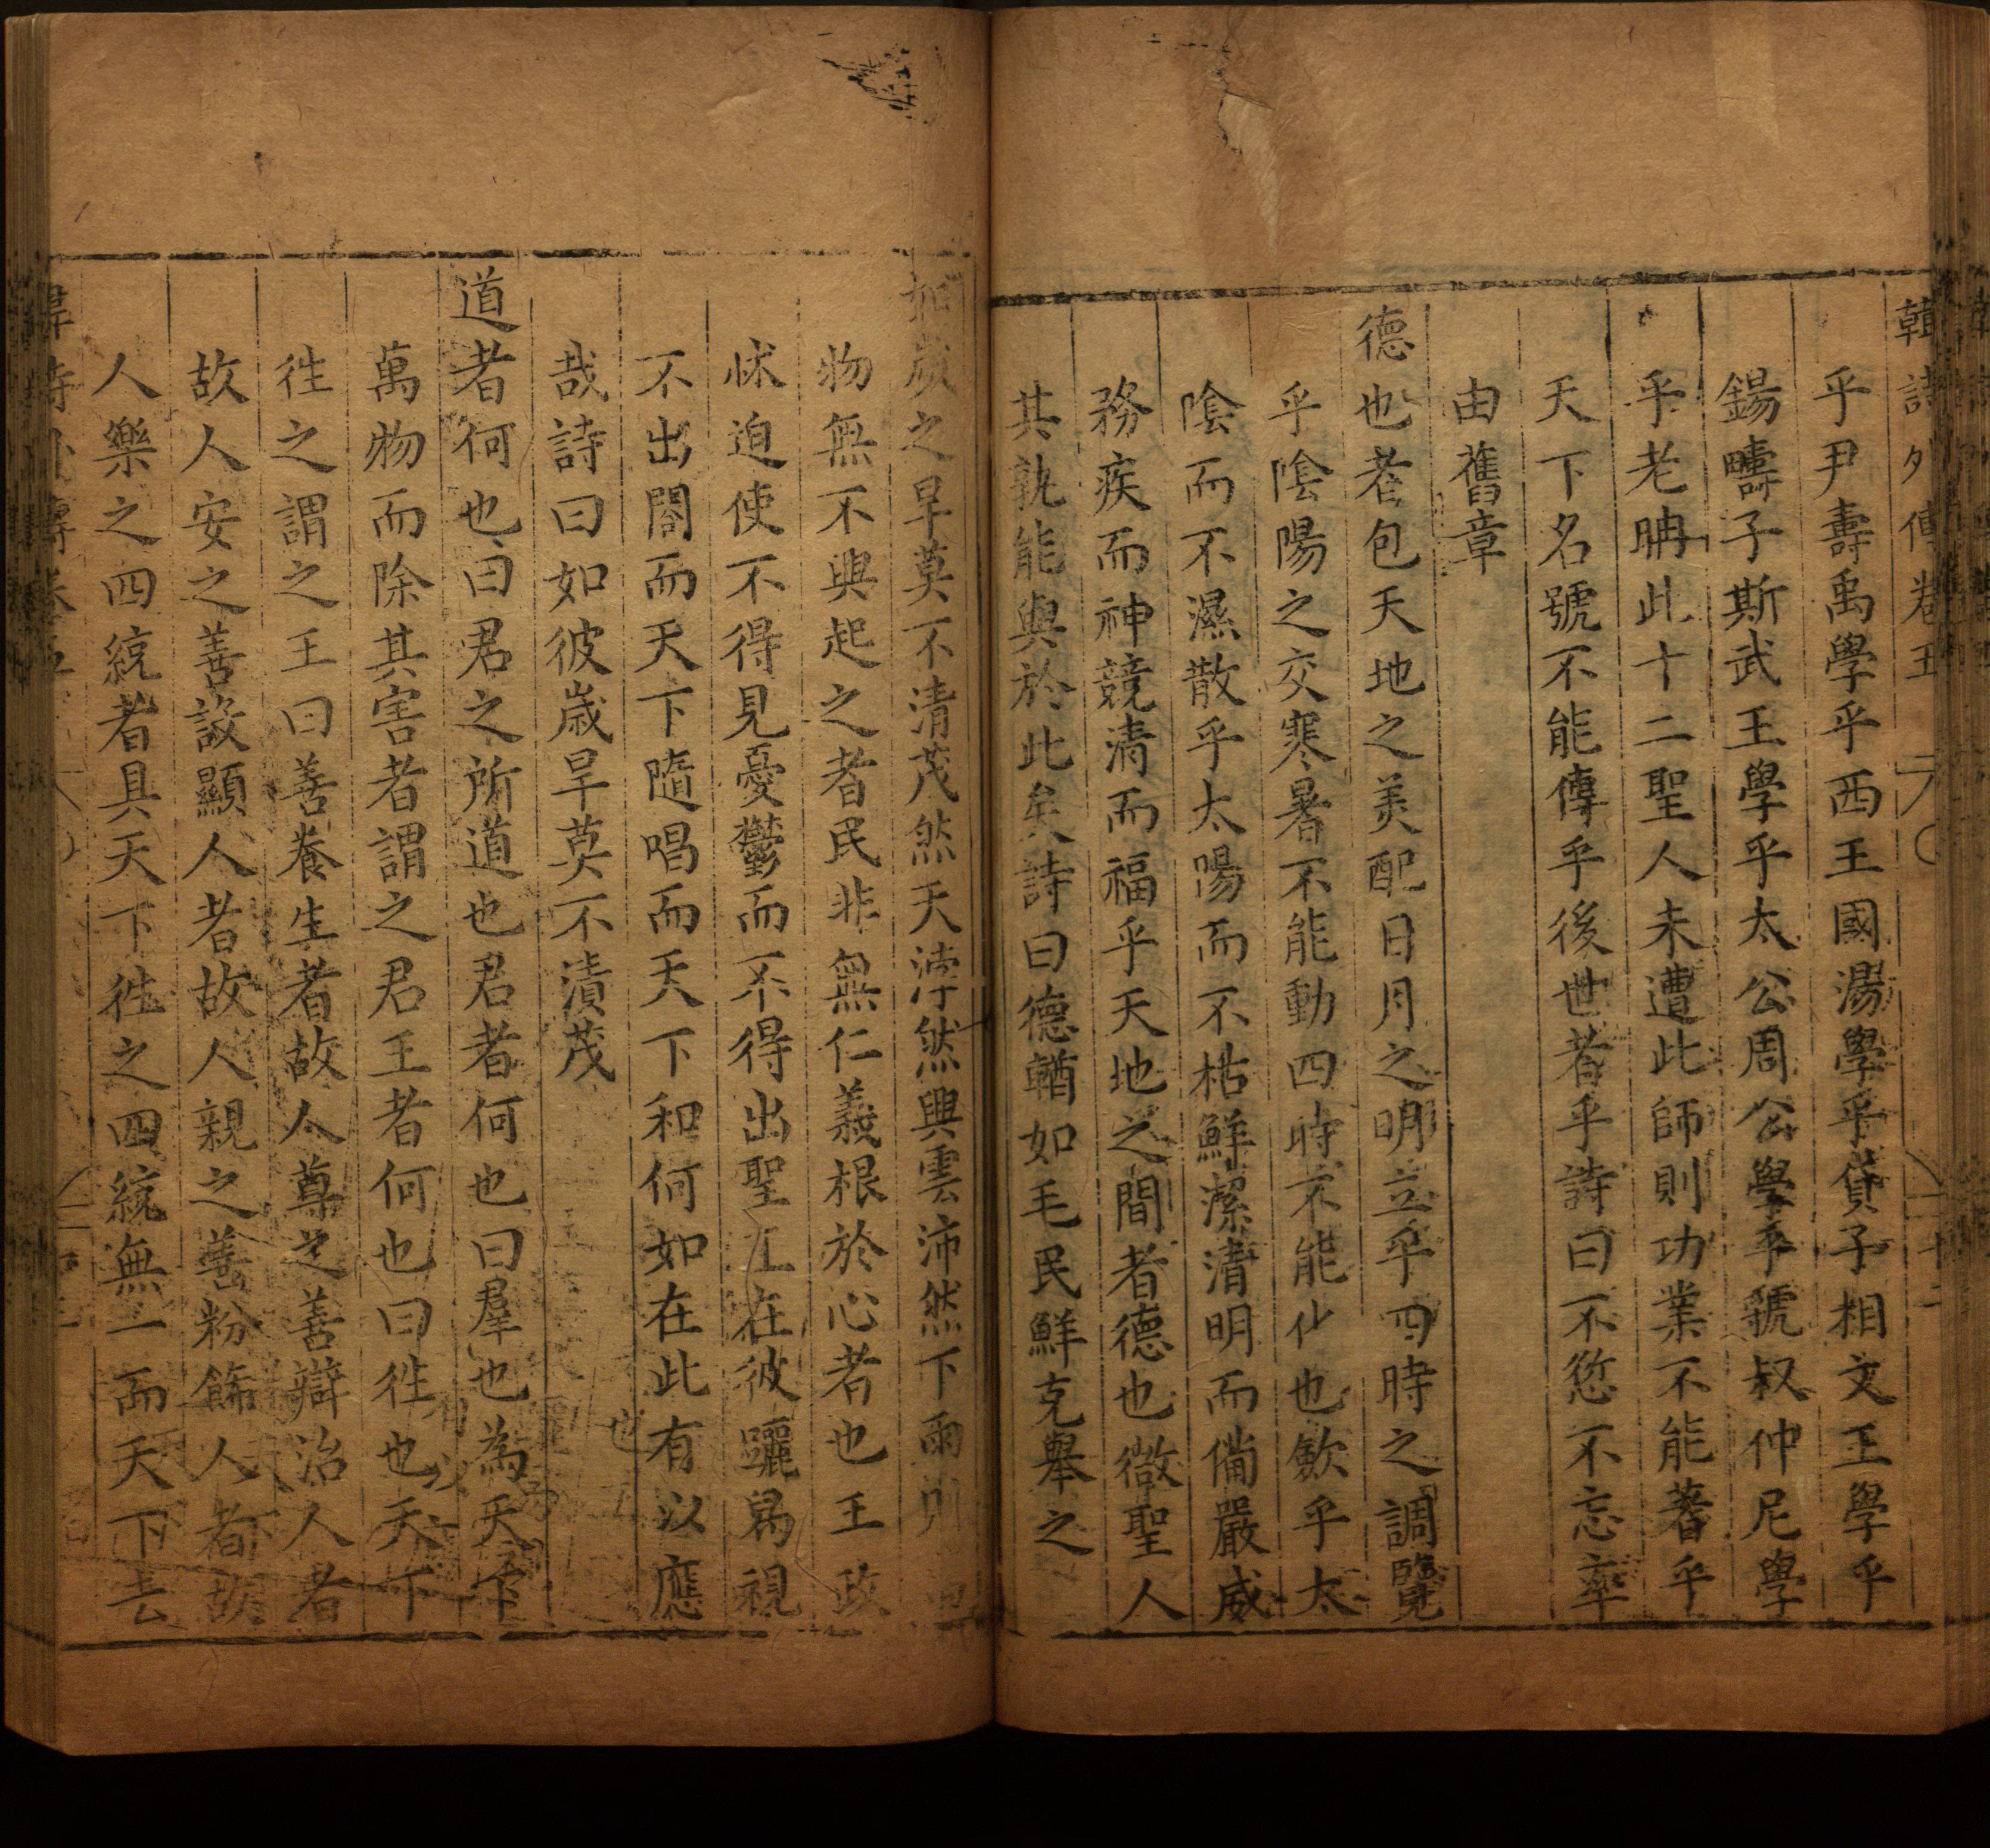 韓詩外傳卷五
乎尹壽禹學乎西王國湯學乎貸子相文王學乎
錫疇子斯武王學乎太公周公學乎號叔仲尼學
乎老聃此十二聖人未遭此師則功業不能著乎
天下名號不能傳乎後世者乎詩曰不愆不忘率
由舊章
德也者包天地之美配日月之明立乎四時之調覽
乎陰陽之交寒暑不能動四時不能化也歛乎太
陰而不濕散乎太陽而不枯鮮潔清明而備嚴威
務疾而神競清而福乎天地之間者德也微聖人
其孰能與於此矣詩曰德輶如毛民鮮克舉之
如嵗之旱莫不清茂然天浡然興雲沛然下雨則
物無不興起之者民非無仁義根於心者也王政
怵迫使不得見憂鬱而不得出聖王在彼躧舄視
不出閤而天下隨唱而天下和何如在此有以應
哉詩曰如彼嵗旱莫不潰茂
道者何也曰君之所道也君者何也曰羣也為天下
萬物而除其害者謂之君王者何也曰徃也天下
徃之謂之王曰善養生者故人尊之善辯治人者
故人安之善設顯人者故人親之善粉飾人者故
人樂之四統者具天下徃之四統無一而天下去
韓詩外傳卷五